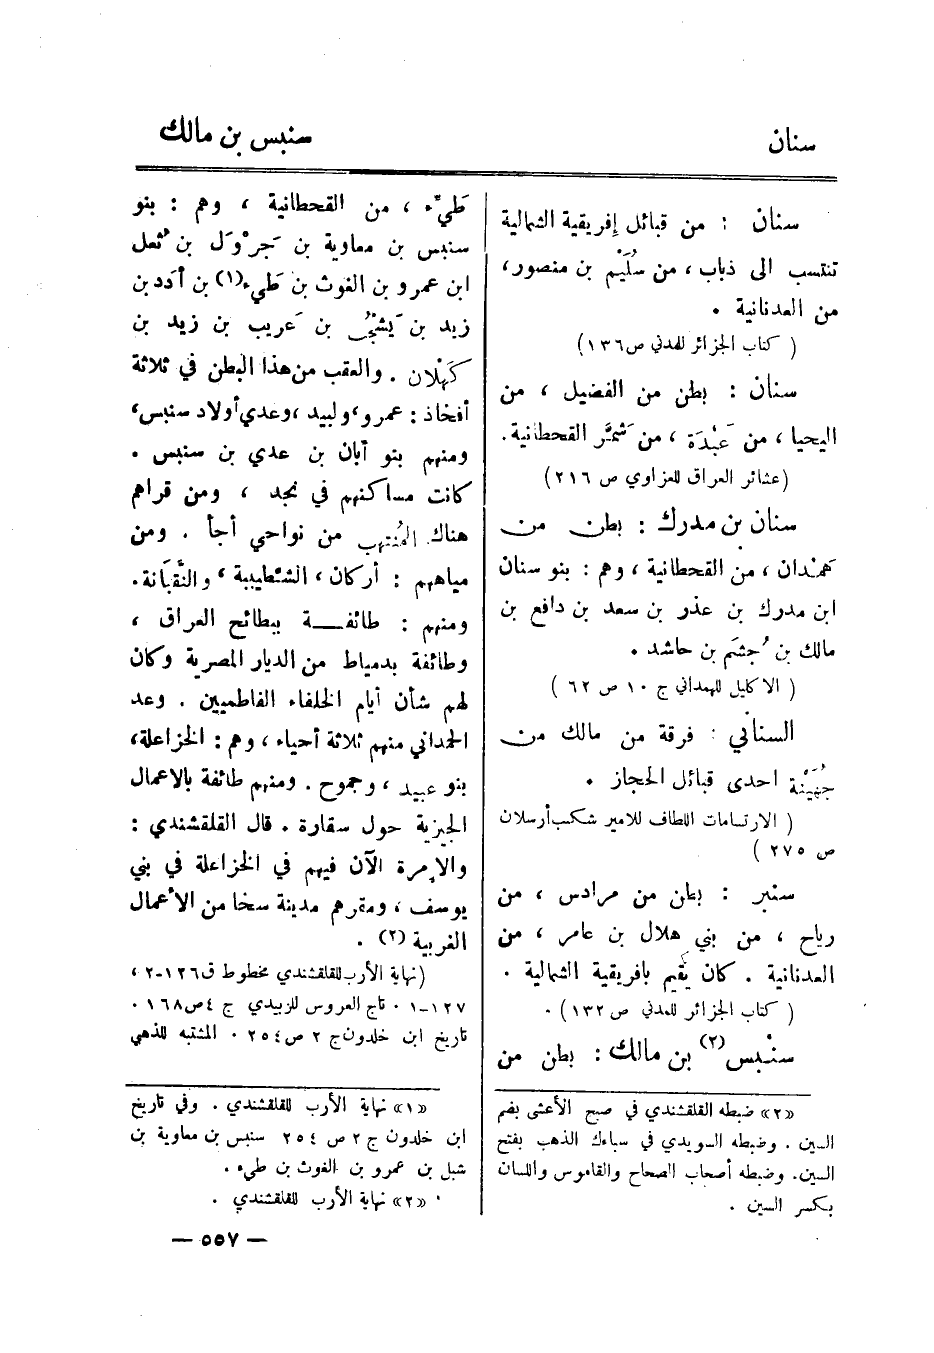 سنان
سنبس بن مالك
سنان : من قبائل إفريقية الشمالية
تنتسب الى ذباب ، من سُلَيْم بن منصور ،
من العدنانية .
( كتاب الجزائر للمدني ص ١٣٦)
سنان : بطن من الفضيل ، من
اليحيا ، من عَبْدَة ، من شَمَّر القحطانية .
(عشائر العراق للعزاوي ص ٢١٦)
سنان بن مدرك : بطن من
همْدان ، من القحطانية ، وهم : بنو سنان
ابن مدرك بن عذر بن سعد بن دافع بن
مالك بن جُشَم بن حاشد .
( الاكليل للهمداني ج ١٠ ص ٦٢ )
السناني : فرقة من مالك من
جُهَيْنَة احدى قبائل الحجاز .
( الارتسامات اللطاف للامير شكيب أرسلان
ص ٢٧٥ )
سنبر : بطن من مرادس ، من
رياح ، من بني هلال بن عامر ، من
العدنانية . كان يُقيم بافريقية الشمالية .
( كتاب الجزائر للمدني ص ١٣٢) .
سنْبس (٢) بن مالك : بطن من
«٢» ضبطه القلقشندي في صبح الأعشى بضم
السين . وضبطه السويدي في سبائك الذهب بفتح
السين. وضبطه أصحاب الصحاح والقاموس واللسان
بكسر السين .
طَيّء ، من القحطانية ، وهم : بنو
سنبس بن معاوية بن جَرْوَل بن ثُعل
ابن عمرو بن الغوث بن طَيء (١) بن أدد بن
زيد بن يَشْجُب بن عَريب بن زيد بن
كَهْلان . والعقب من هذا البطن في ثلاثة
أفخاذ : عمرو ، ولبيد ، وعدي أولاد سنبس ،
ومنهم بنو أبان بن عدي بن سنبس .
كانت مساكنهم في نجد ، ومن قراهم
هناك المُنْتهب من نواحي أجأ . ومن
مياههم : أركان ، الشطيبية ، والنَّقبَانة .
ومنهم : طائفة ببطائح العراق ،
وطائفة بدمياط من الديار المصرية وكان
لهم شأن أيام الخلفاء الفاطميين . وعد
الحمداني منهم ثلاثة أحياء ، وهم : الخزاعلة ،
بنو عبيد ، وجموح . ومنهم طائفة بالاعمال
الجيزية حول سقارة . قال القلقشندي :
والإمرة الآن فيهم في الخزاعلة في بني
يوسف ، ومقرهم مدينة سخا من الأعمال
الغربية (٢) .
(نهاية الأرب للقلقشندي مخطوط ق ١٢٦-٢ ،
١٢٧-١ . تاج العروس للزبيدي ج ٤ ص ١٦٨ .
تاريخ ابن خلدون ج ٢ ص ٢٥٤ . المشتبه للذهبي
«١» نهاية الأرب للقلقشندي . وفي تاريخ
ابن خلدون ج ٢ ص ٢٥٤ سنبس بن معاوية بن
شبل بن عمرو بن الغوث بن طيء .
«٢» نهاية الأرب للقلقشندي .
— ٥٥٧ —